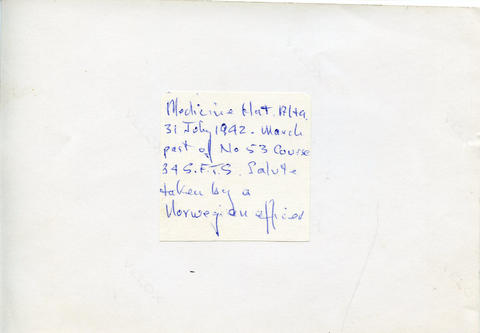 Medicine Hat. Alta.
31 July 1942. March
past of No 53 Course
34 S.F.T.S. Salute
taken by a
Norwegian officer